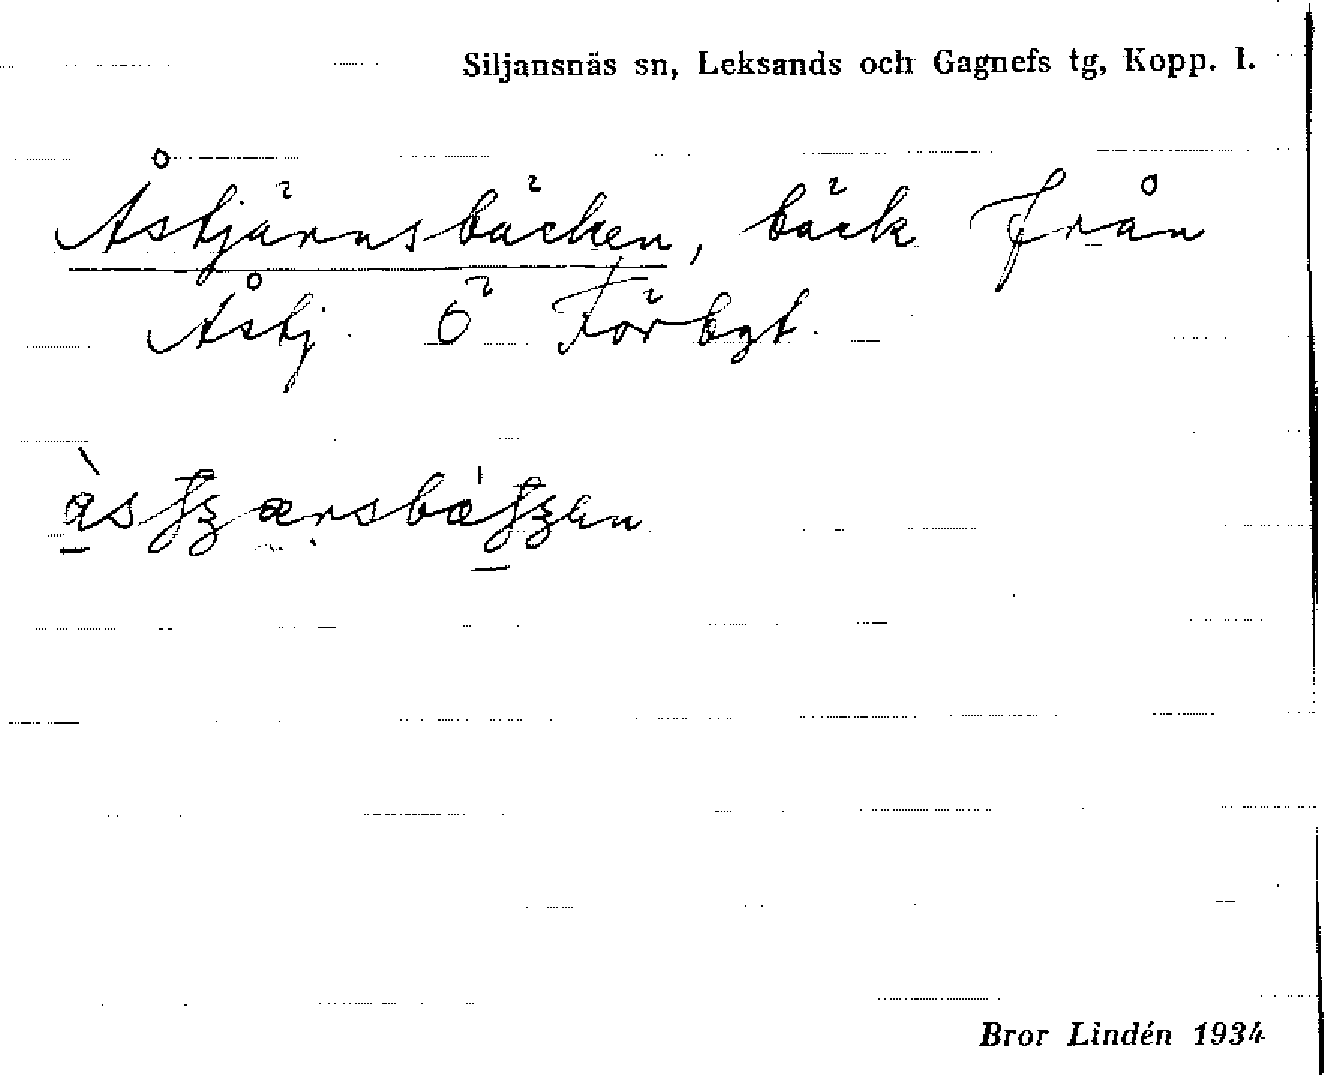 Siljansnäs sn, Leksands och Gagnefs tg, Kopp. l.
Åstjärnsbäcken, bäck från
Åstj. Ö Färbgt.
Bror Lindén 1934